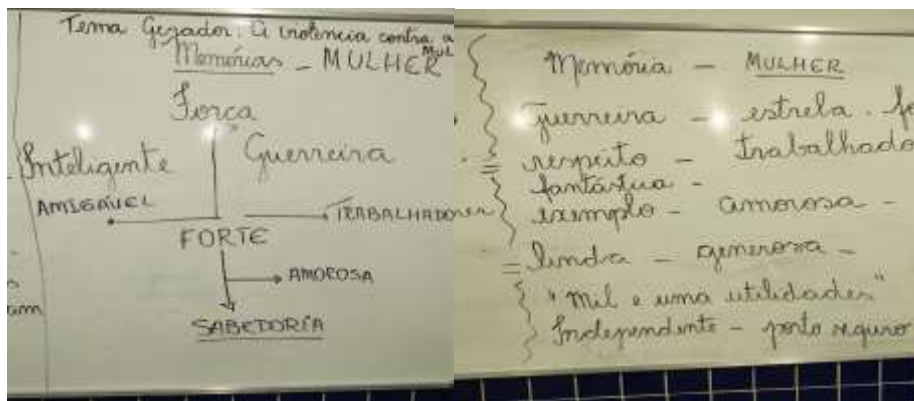 Tema Gerador: A violência contra a
Mul
Memórias - MULHER
Força
Inteligente
Guerreira
AMIGÁVEL
TRABALHADORES
FORTE
AMOROSA
SABEDORIA
am
Memória - MULHER
Guerreira - estrela.
respeito - trabalhado
fantástica -
exemplo - amorosa -
linda - generosa -
"Mil e uma utilidades"
Independente - porto seguro